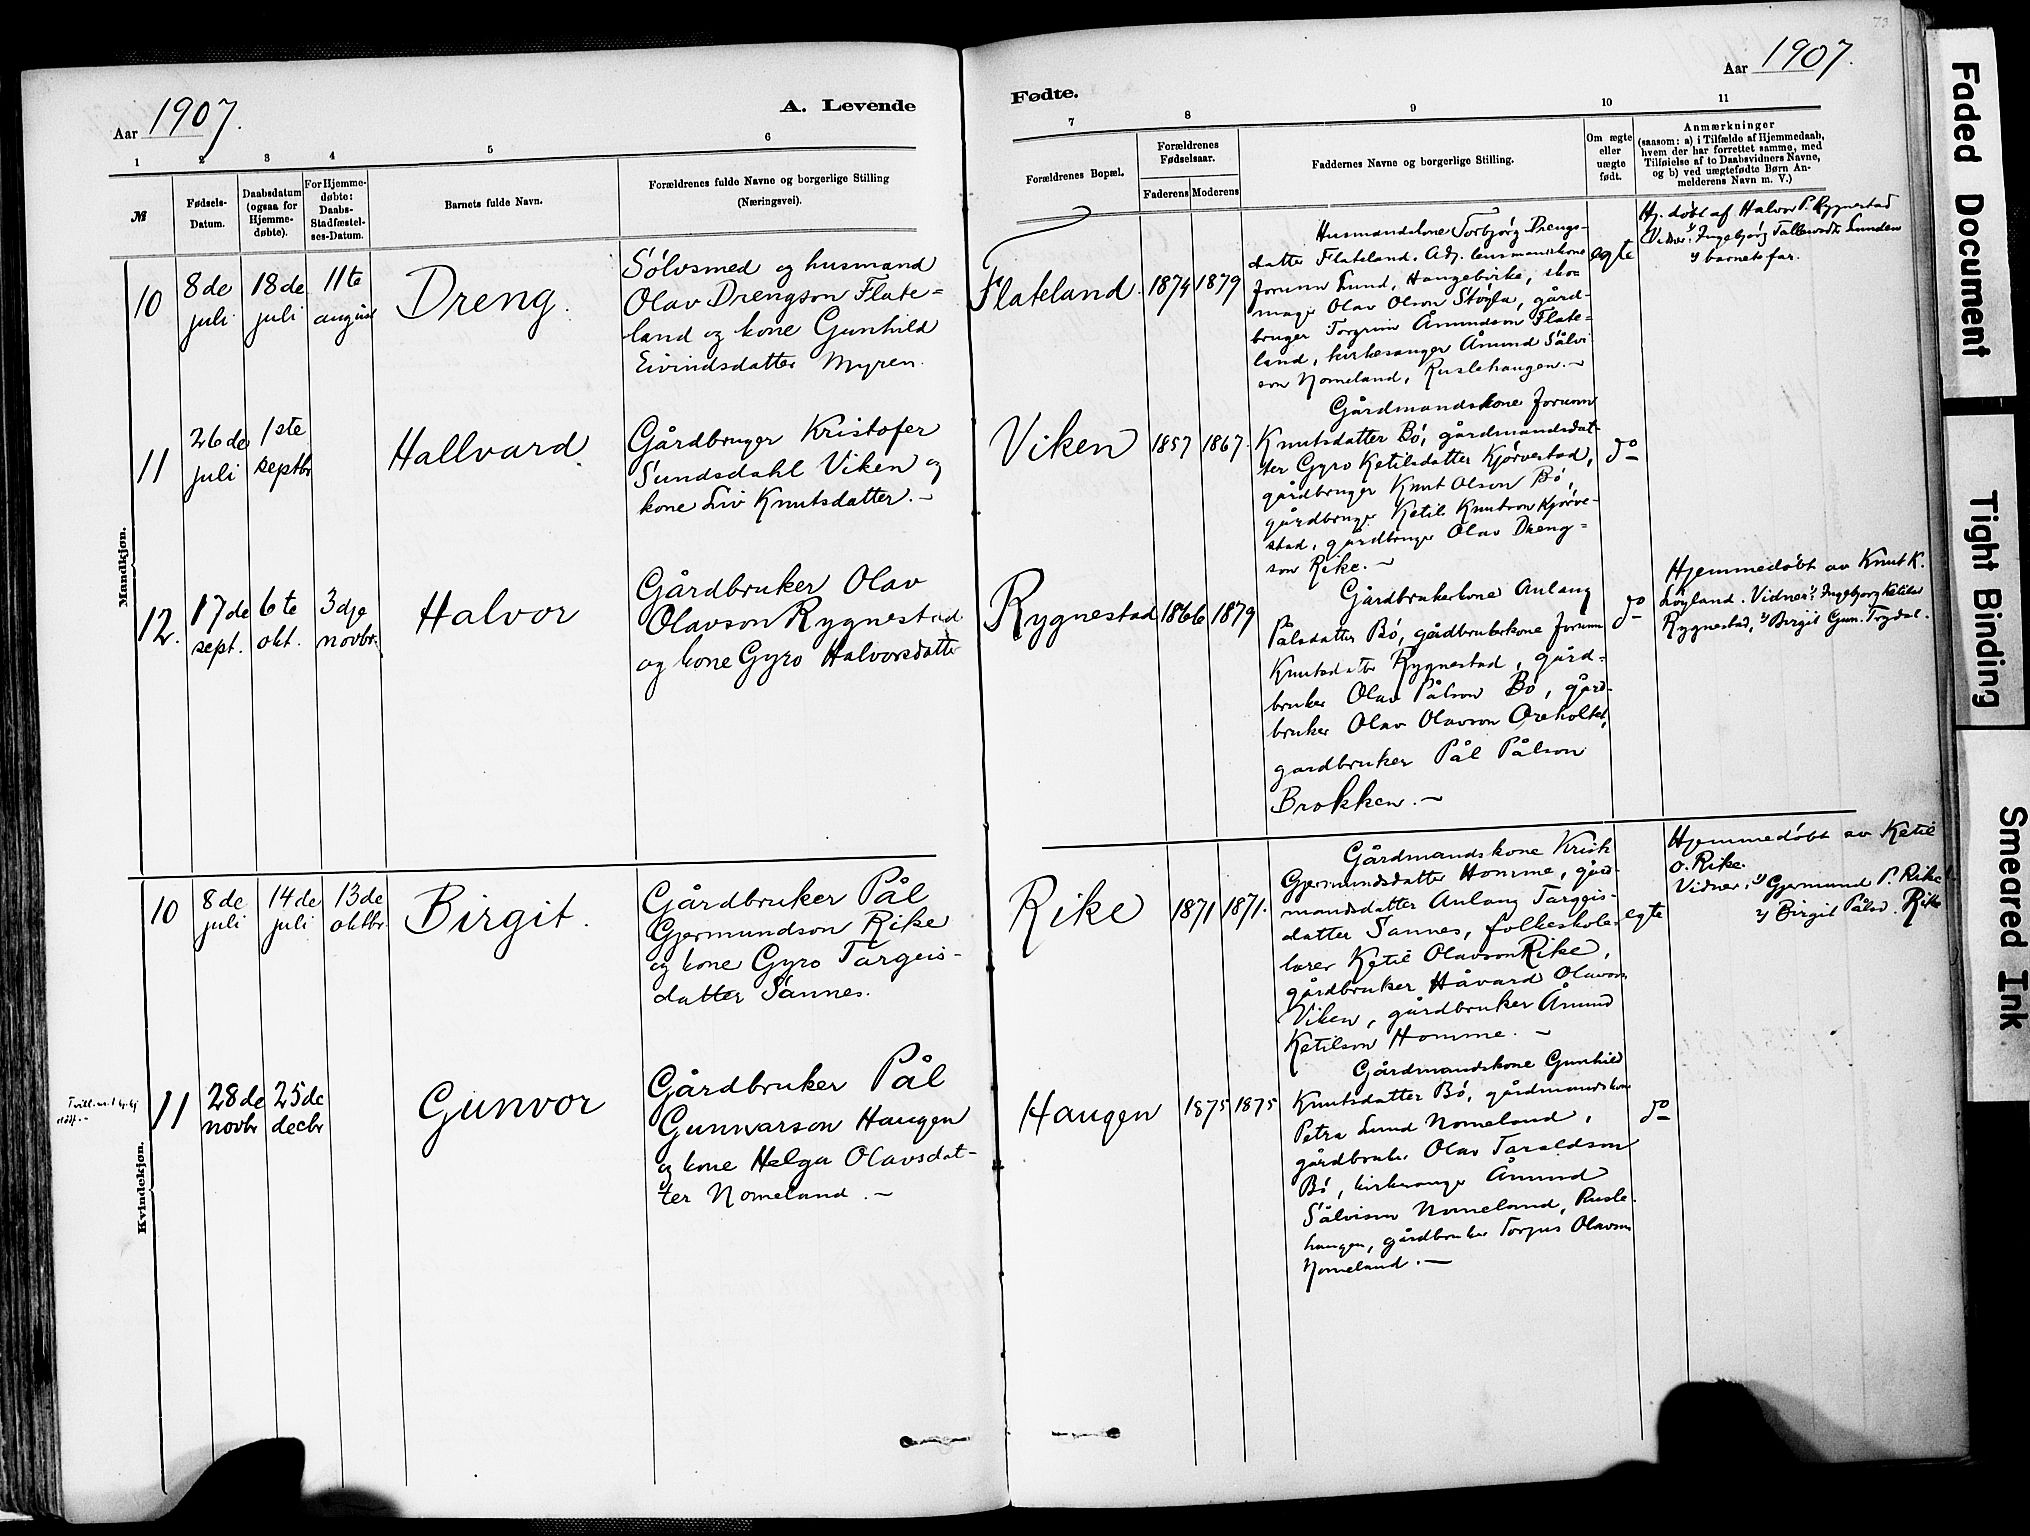 73
Aar 1907.
A. Levende
Fødte.
Aar 1907.
1
2
3
4
5
6
7
8
9
10
11
№
Fødsels-
Datum.
Daabsdatum
(ogsaa for
Hjemme-
døbte).
For Hjemme-
døbte:
Daabs-
Stadfæstel-
ses-Datum.
Barnets fulde Navn.
Forældrenes fulde Navne og borgerlige Stilling
(Næringsvei).
Forældrenes Bopæl.
Forældrenes
Fødselsaar.
Faderens
Moderens
Faddernes Navne og borgerlige Stilling.
Om ægte
eller
uægte
født.
Anmærkninger
(saasom: a) i Tilfælde af Hjemmedaab,
hvem der har forrettet samme, med
Tilføielse af to Daabsvidners Navne,
og b) ved uægtefødte Børn An-
melderens Navn m. V.)
Mandkjøn.
10
8de
juli
18de
juli
11te
august
Dreng.
Sølvsmed og husmand
Olav Drengson Flate=
land og kone Gunhild
Eivindsdatter Myren.
Flateland.
1874
1879
Husmandskone Torbjørg Drengs-
datter Flateland. Adj. lensmandskone
Jorunn Lund, Haugebirke, sko=
mager Olav Olson Støyla, gård-
bruger Torgrim Åmundson Flate=
land, kirkesanger Åmund Sålvi
son Nomeland, Ruslehaugen.-
egte
Hj. døbt af Halvor P. Rygnestad
Vidner: 1) Ingebjørg Tallevsdtr Lunden
2) barnets far.
11
26de
juli
1ste
septbr
Hallvard.
Gårdbruger Kristofer
Sundsdahl Viken og
kone Liv Knutsdatter.-
Viken
1857
1867.
Gårdmandskone Jorunn
Knutsdatter Bö, gårdmandsdat-
ter Gyro Ketilsdatter Kjörvestad,
gårdbruger Knut Olson Bö,
gårdbruger Ketil Knutson Kjörve-
stad, gårdbruger Olav Dreng=
son Rike.-
do
12.
17de
sept.
6te
okt.
3dje
novbr.
Halvor
Gårdbruker Olav
Olavson Rygnestad
og kone Gyro Halvorsdatter
Rygnestad
1866
1879
Gårdbrukerkone Anlaug
Pålsdatter Bö, gårdbrukerkone Jorunn
Knutsdatter Rygnestad, gård-
bruker Olav Pålson Bö, gård-
bruker Olav Olavson Oreholtet,
gardbruker Pål Pålson
Brokken.-
do
Hjemmedöbt av Knut K.
Løyland. Vidner: 1) Ingebjørg Ketilsd
Rygnestad, 2) Birgit Gun. Trydal.
Kvindekjøn.
10
8de
juli
14de
juli
13de
oktbr.
Birgit.
Gårdbruker Pål
Gjermundson Rike
og kone Gyro Targeis-
datter Sannes.
Rike
1871
1871.
Gårdmandskone Kristi
Gjermundsdatter Homme, gård-
mandsdatter Anlaug Targeis-
datter Sannes, folkeskole-
lærer Ketil Olavson Rike,
gårdbruker Håvard Olavson
Viken, gårdbruker Åmund
Ketilson Homme.-
egte
Hjemmedöbt av Ketil
O. Rike.
Vidner: 1) Gjermund P. Rike
2) Birgit Pålsd. Rike
11
28de
novbr
25de
decbr
Gunvor
Gårdbruker Pål
Gunnarson Haugen
og kone Helga Olavsdat-
ter Nomeland.-
Haugen
1875
1875
Gårdmandskone Gunhild
Knutsdatter Bö, gårdmandskone
Petra Lund Nomeland,
gårdbruker Olav Taraldson
Bö, kirkesanger Åmund
Sålvison Nomeland, Rusle-
haugen, gårdbruker Torjus Olavson
Nomeland.-
do
Faded Document
Tight Binding
Smeared Ink